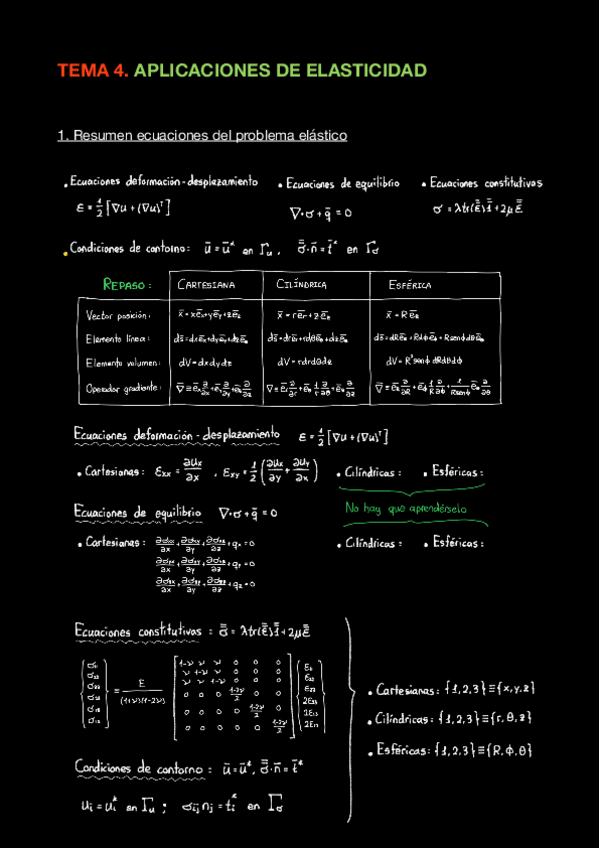 TEMA 4. APLICACIONES DE ELASTICIDAD
1. Resumen ecuaciones del problema elástico
• Ecuaciones deformación-desplazamiento • Ecuaciones de equilibrio • Ecuaciones constitutivas
ε = 1/2 [∇u + (∇u)ᵀ] ∇·σ + q̄ = 0 σ = λtr(ε̿)1̿ + 2με̿
• Condiciones de contorno: ū = ū* en Γu, σ̿·n̄ = t̄* en Γσ
REPASO: CARTESIANA CILÍNDRICA ESFÉRICA
Vector posición: x̄ = xēx + yēy + zēz x̄ = rēr + zēz x̄ = RēR
Elemento línea: ds̄ = dxēx + dyēy + dzēz ds̄ = drēr + rdθēθ + dzēz ds̄ = dRēR + Rdϕēϕ + Rsenϕdθēθ
Elemento volumen: dV = dxdydz dV = rdrdθdz dV = R²senϕ dRdθdϕ
Operador gradiente: ∇̄ ≡ ēx ∂/∂x + ēy ∂/∂y + ēz ∂/∂z ∇̄ ≡ ēr ∂/∂r + ēθ 1/r ∂/∂θ + ēz ∂/∂z ∇̄ ≡ ēR ∂/∂R + ēϕ 1/R ∂/∂ϕ + 1/Rsenϕ ēθ ∂/∂θ
Ecuaciones deformación-desplazamiento ε = 1/2 [∇u + (∇u)ᵀ]
• Cartesianas: εxx = ∂ux/∂x , εxy = 1/2 (∂ux/∂y + ∂uy/∂x) • Cilíndricas: • Esféricas:
No hay que aprendérselo
Ecuaciones de equilibrio ∇·σ + q̄ = 0
• Cartesianas: • Cilíndricas: • Esféricas:
Ecuaciones constitutivas: σ̿ = λtr(ε̿)1̿ + 2με̿
E
(1+ν)(1-2ν)
1-ν ν ν 0 0 0
ν 1-ν ν 0 0 0
ν ν 1-ν 0 0 0
0 0 0 1-2ν/2 0 0
0 0 0 0 1-2ν/2 0
0 0 0 0 0 1-2ν/2
• Cartesianas: {1,2,3} ≡ {x,y,z}
• Cilíndricas: {1,2,3} ≡ {r,θ,z}
• Esféricas: {1,2,3} ≡ {R,ϕ,θ}
Condiciones de contorno: ū = ū*, σ̿·n̄ = t̄*
ui = ui* en Γu ; σij nj = ti* en Γσ